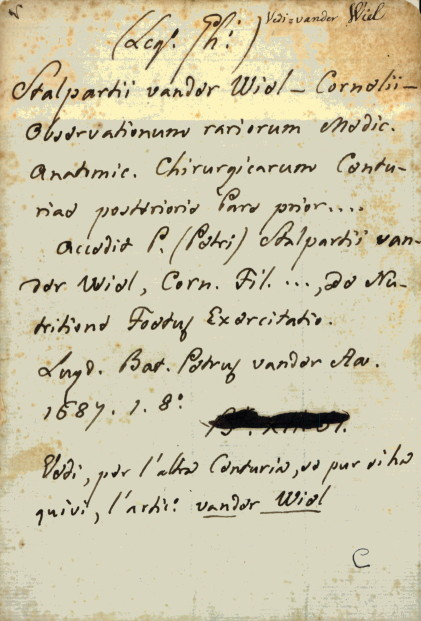 Vedi = vander Wiel
(Leg. Ph:)
Stalpartii vander Wiel – Cornelii –
Observationum rariorum Medic.
Anatomic. Chirurgicarum Centu-
riae posterioris Pars prior....
Accedit P. (Petri) Stalpartii van-
der Wiel, Corn. Fil. ..., De Nu-
tritione Foetus Exercitatio.
Lugd. Bat. Petrus vander Aa.
1687. 1. 8.º
Vedi, per l'altra Centuria, se pur si ha
quivi, l'artic: vander Wiel
C